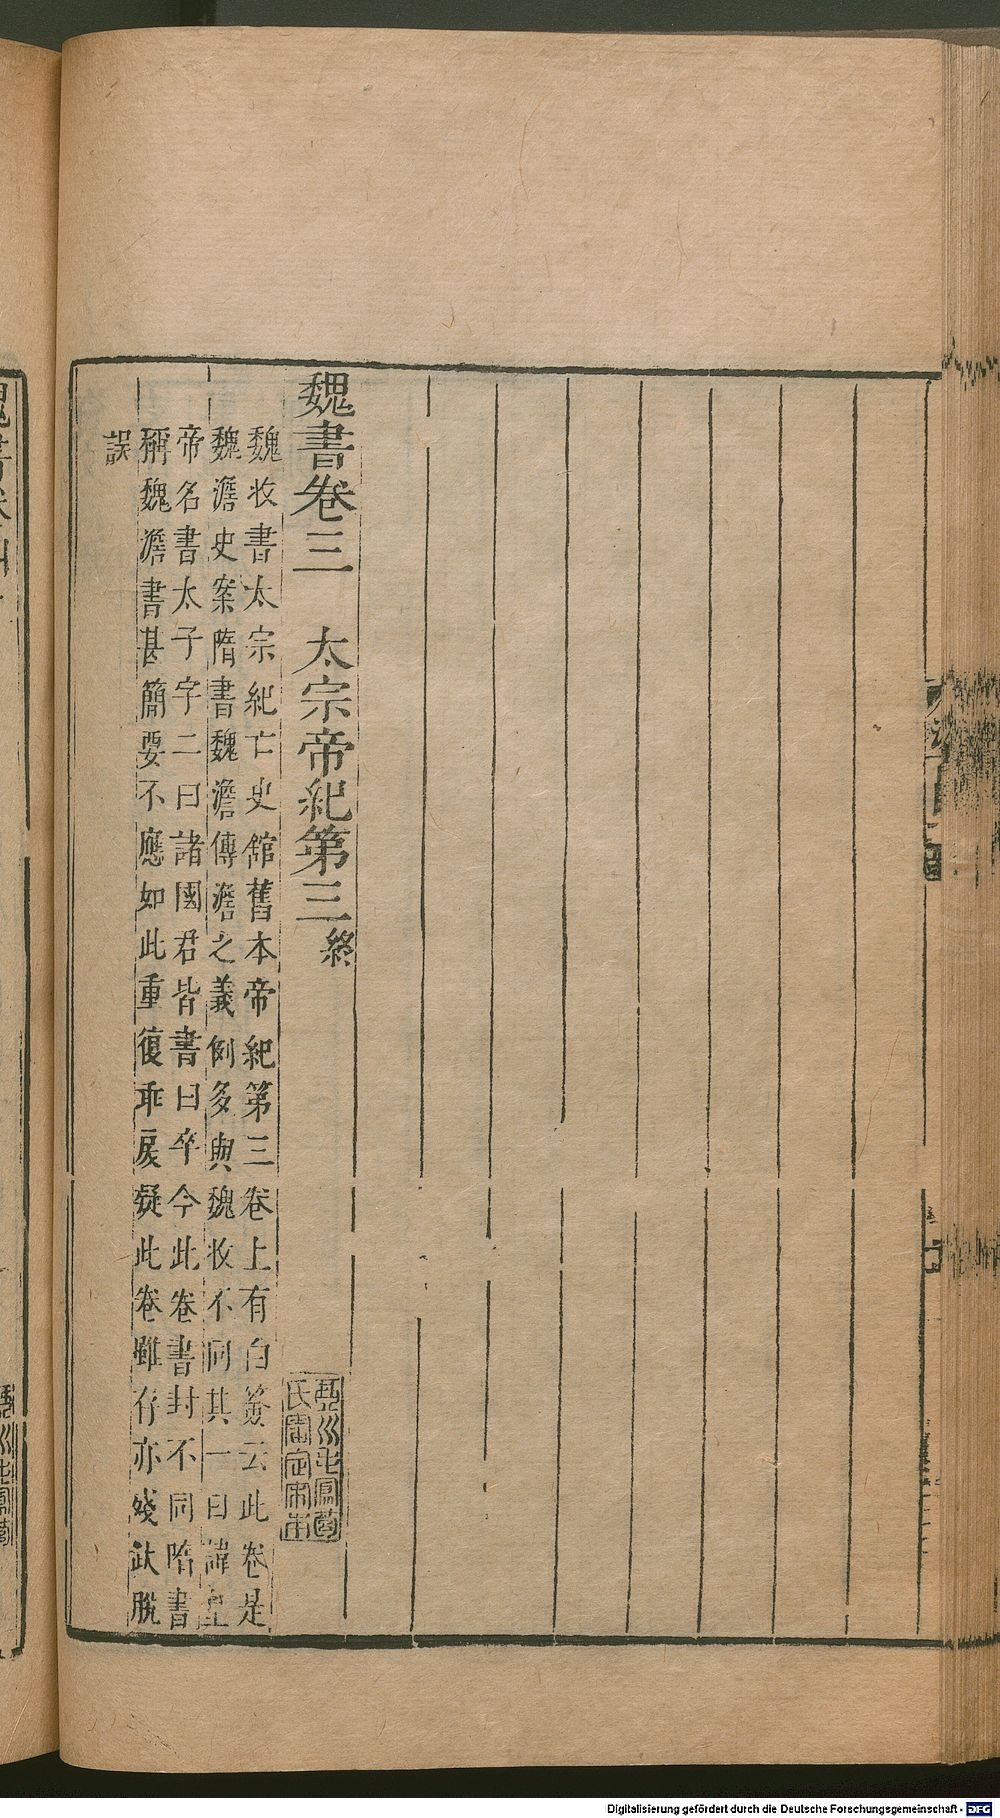 魏書卷三　太宗帝紀第三終
魏收書太宗紀亡史舘舊本帝紀第三卷上有白簽云此卷是
魏澹史案隋書魏澹傳澹之義例多與魏收不同其一曰諱皇
帝名書太子字二曰諸國君皆書曰卒今此卷書封不同隋書
稱魏澹書甚簡要不應如此重復乖戾疑此卷雖存亦殘缺脫
誤
魏書卷四
Digitalisierung gefördert durch die Deutsche Forschungsgemeinschaft - DFG